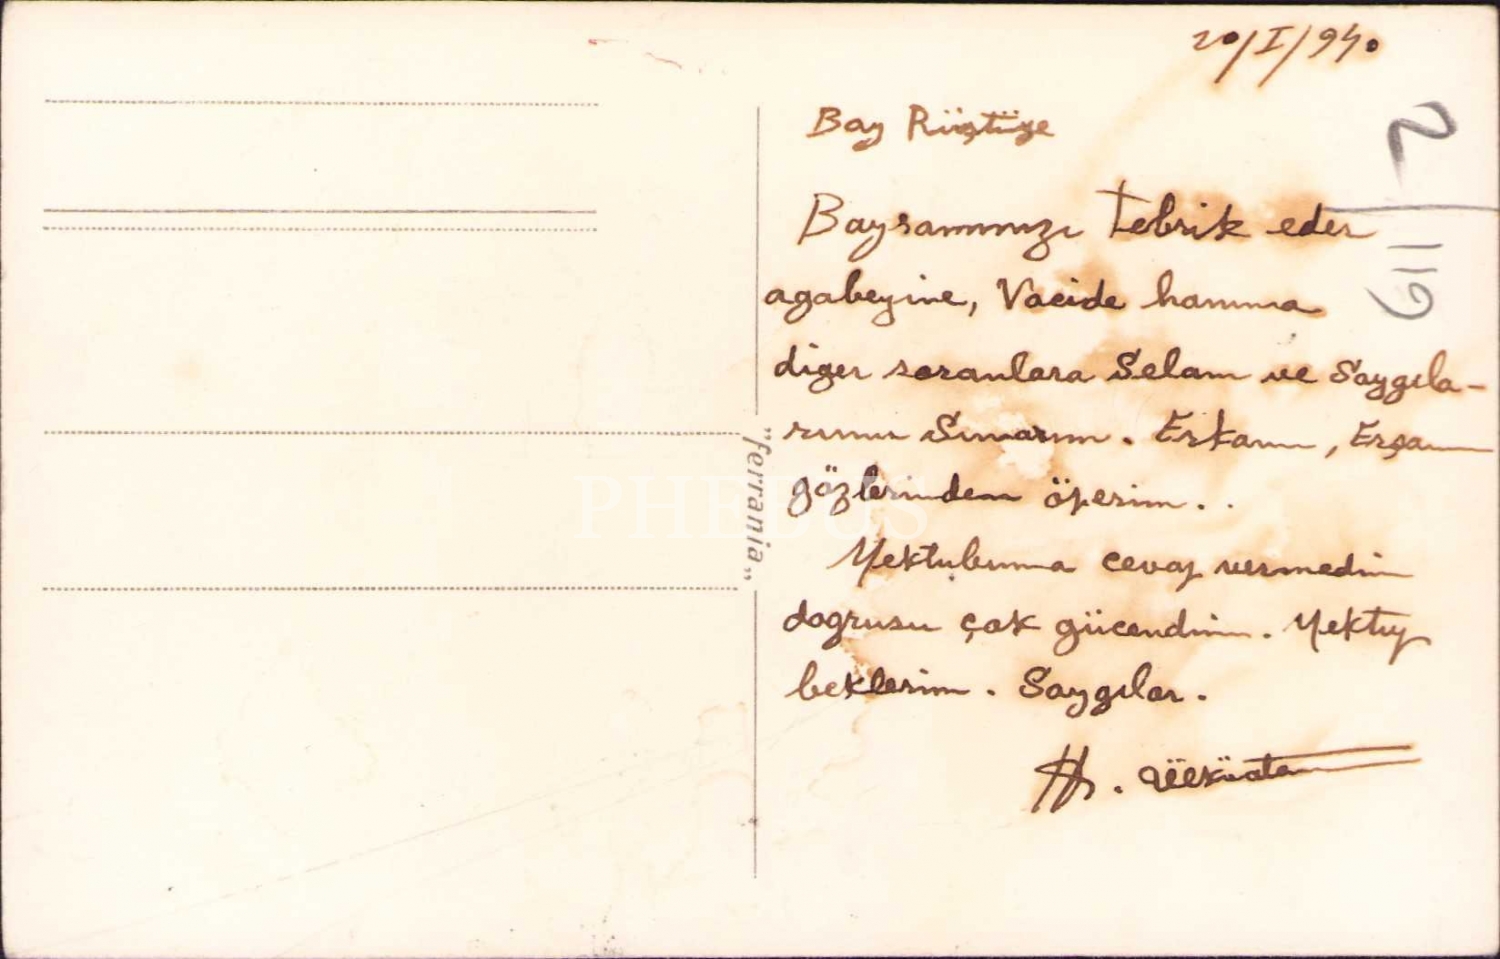 20/I/940
Bay Rüştüye
Bayramınızı tebrik eder
agabeyine, Vacide hanıma
diger soranlara Selam ve Saygıla-
rımı Sunarım. Erkanın, Erşanın
gözlerinden öperim..
Mektubuma cevap vermedin
dogrusu çok gücendim. Mektup
beklerim. Saygılar.
H. Ülküatam
2
119
"ferrania"
PHEBUS